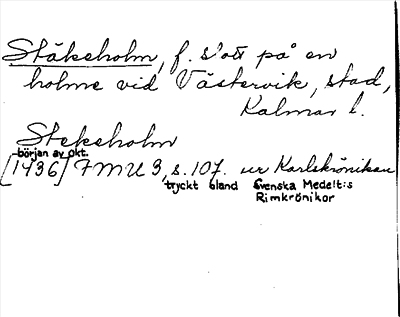 Stäkeholm, f. slott på en
holme vid Västervik, stad,
Kalmar l.
Stekeholm
början av okt.
[1436] FMU 3, s. 107. ur Karlskrönikan
tryckt bland Svenska Medelt:s
Rimkrönikor